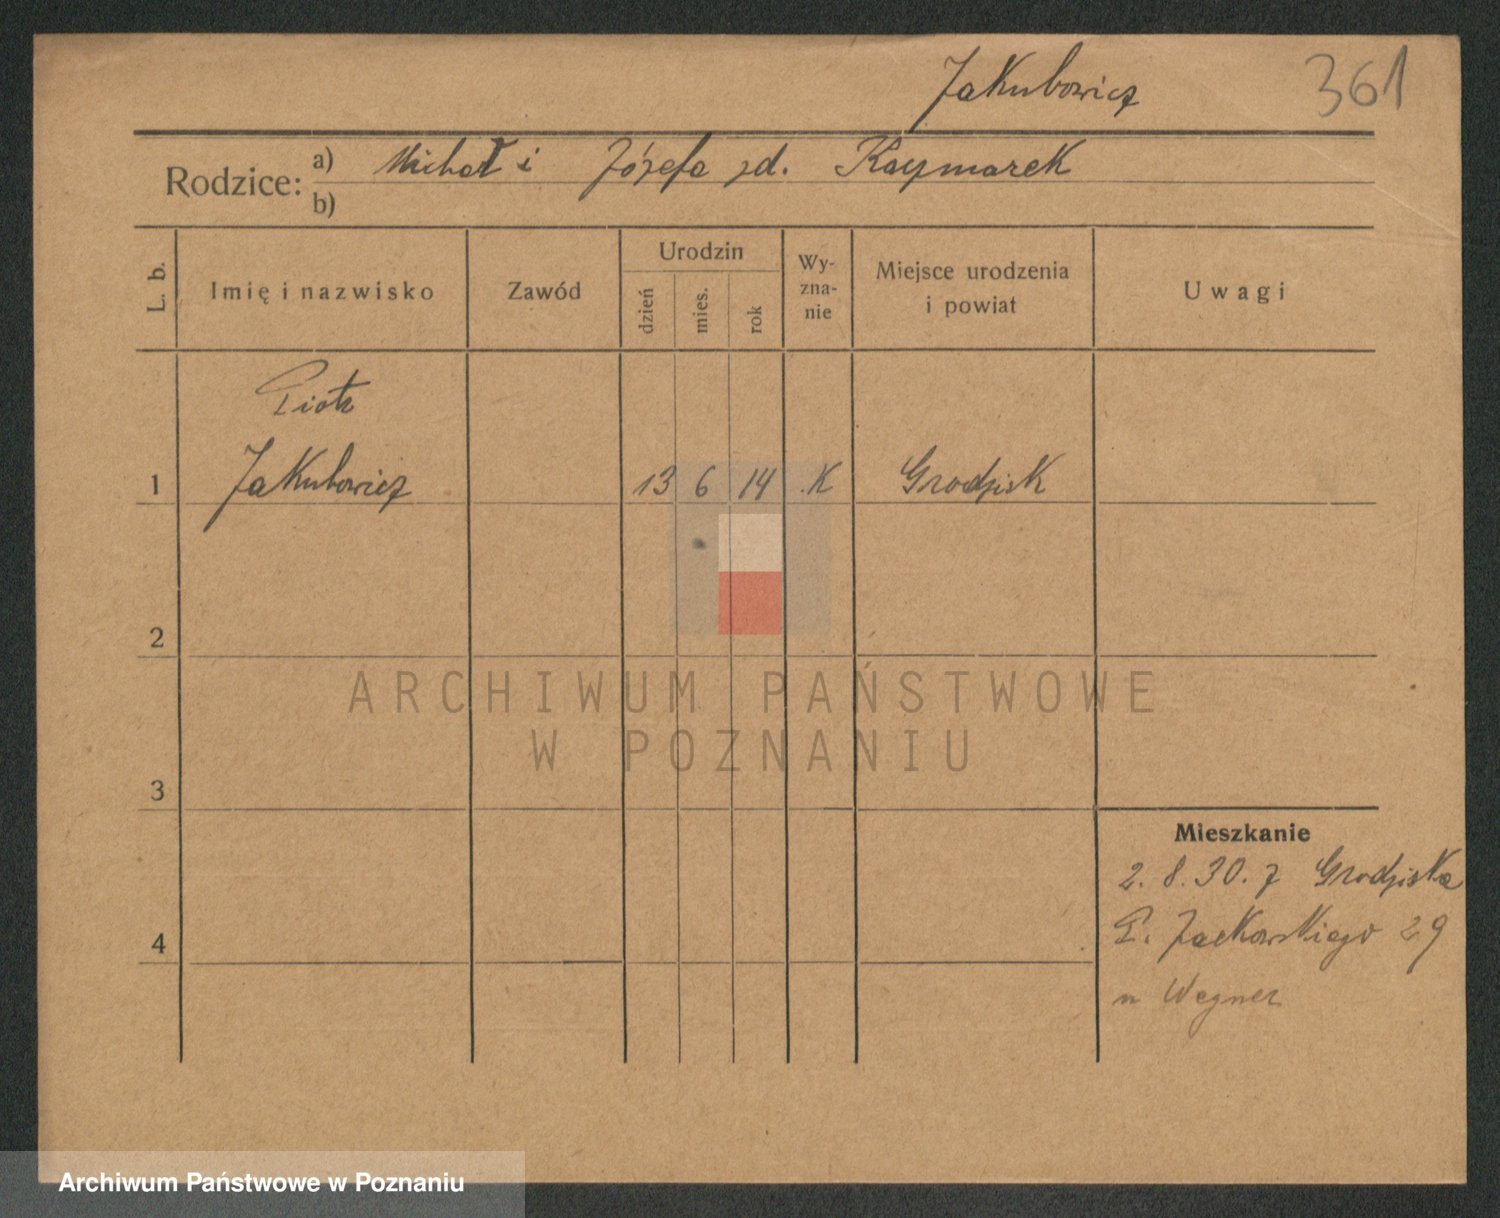 Jakubowicz 361
Rodzice: a) Michał i Józefa zd. Kaczmarek
b)
L. b. Imię i nazwisko Zawód Urodzin dzień mies. rok Wyzna-nie Miejsce urodzenia i powiat Uwagi
Piotr
1 Jakubowicz 13 6 14 K Grodzisk
2
ARCHIWUM PAŃSTWOWE
W POZNANIU
3
Mieszkanie
2. 8. 30. z Grodziska
4 P. Jackowskiego 29
u Wegner
Archiwum Państwowe w Poznaniu